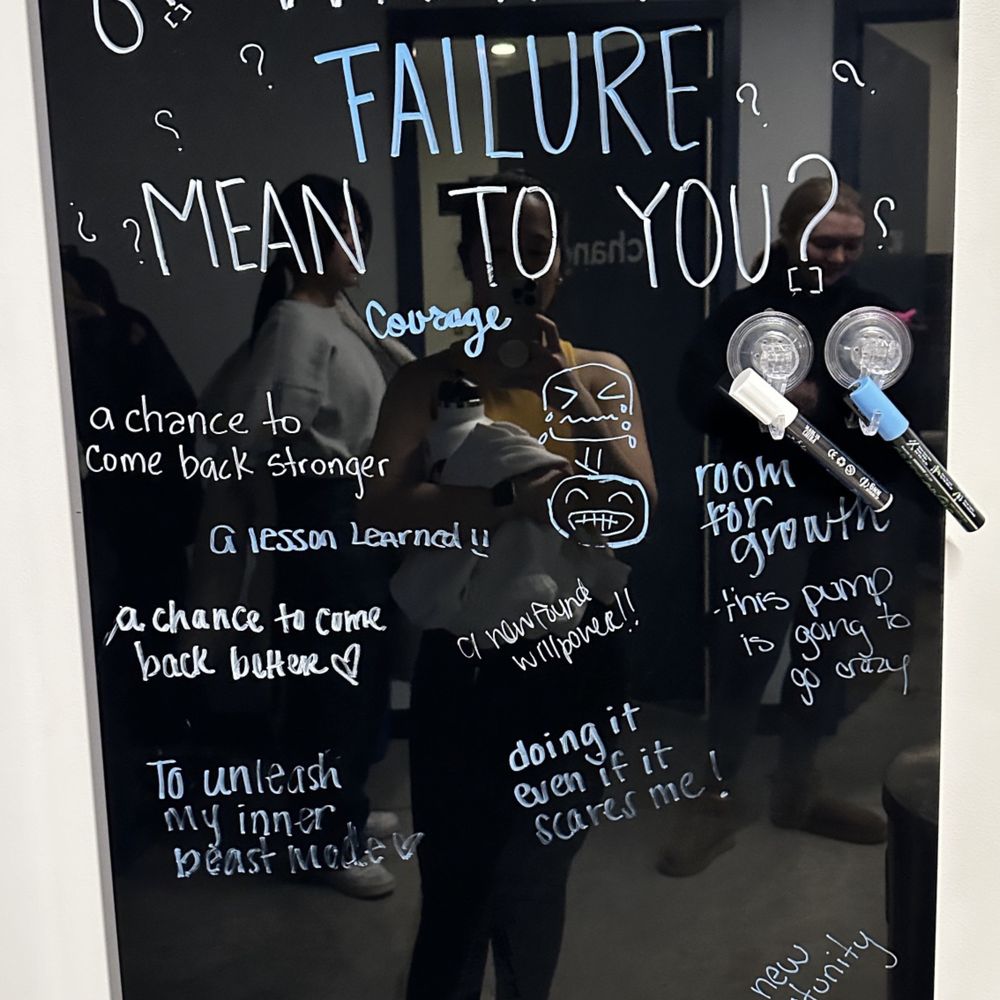 FAILURE
MEAN TO YOU?
Courage
a chance to
come back stronger
a lesson learned !!
room
for
growth
a chance to come
back better
a newfound
willpower!!
this pump
is going to
go crazy
To unleash
my inner
beast mode
doing it
even if it
scares me!
new